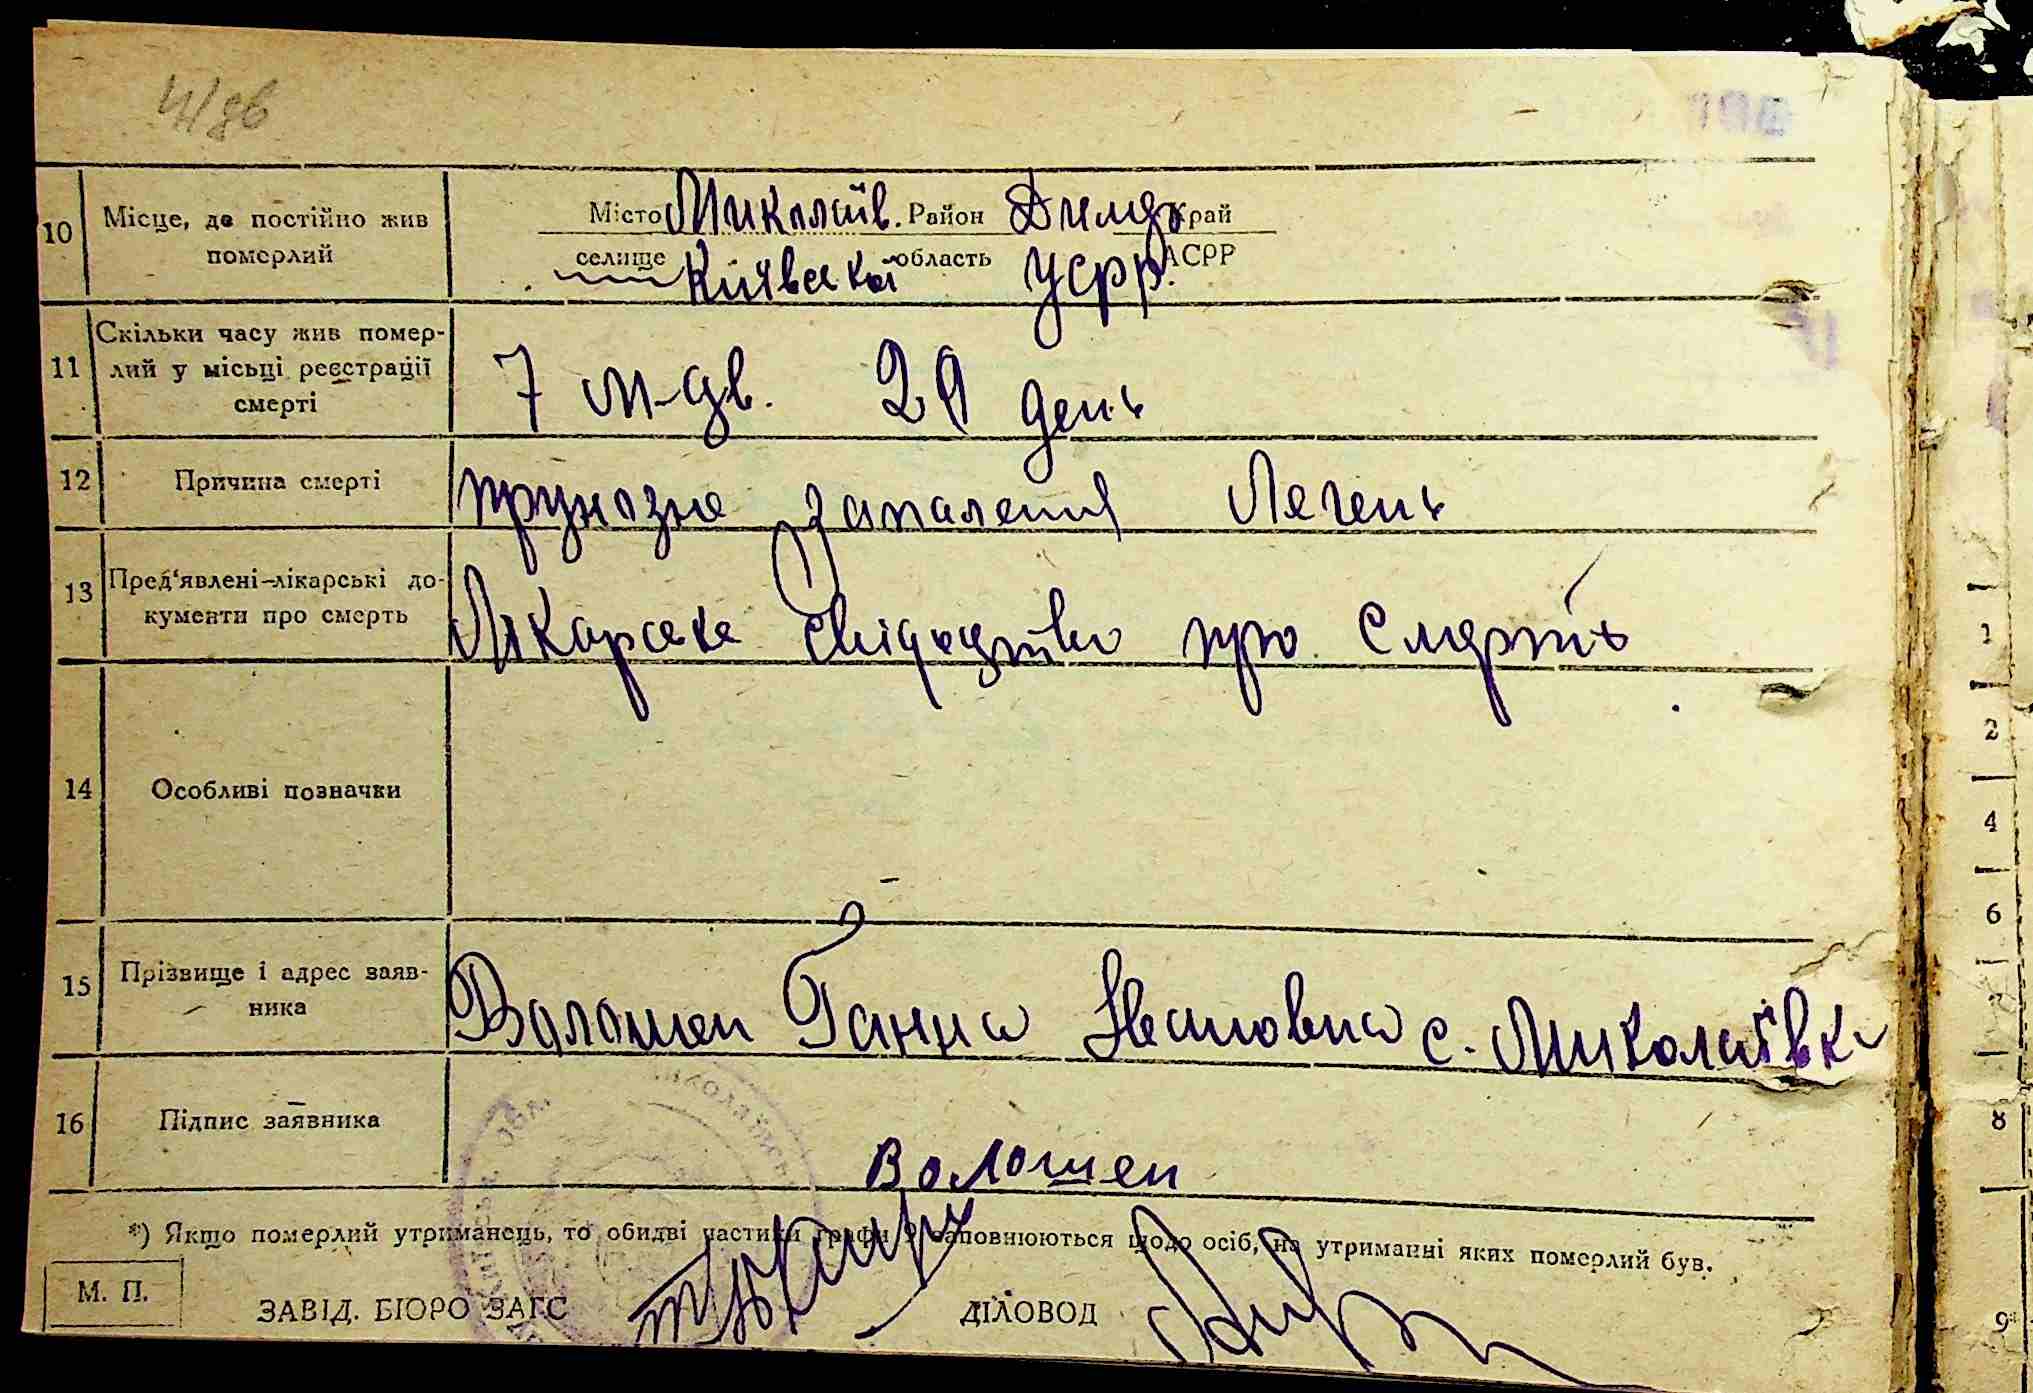 10 Місце, де постійно жив Місто Миколаїв. Район Димер Край
померлий селище Київської область УСРР. АСРР
Скільки часу жив помер-
11 лий у місьці реєстрації 7 м-цв. 29 день
смерті
12 Причина смерті крупозне запалення Легень
13 Пред'явлені-лікарські до-
кументи про смерть Лікарське свідоцтво про смерть
14 Особливі позначки
15 Прізвище і адрес заяв-
ника Волошен Ганна Івановна с. Миколаївка
16 Підпис заявника Волошен
*) Якщо померлий утриманець, то обидві частини графи 9 заповнюються щодо осіб, на утриманні яких померлий був.
М. П. ЗАВІД. БЮРО ЗАГС ДІЛОВОД
1
2
4
6
7
8
9